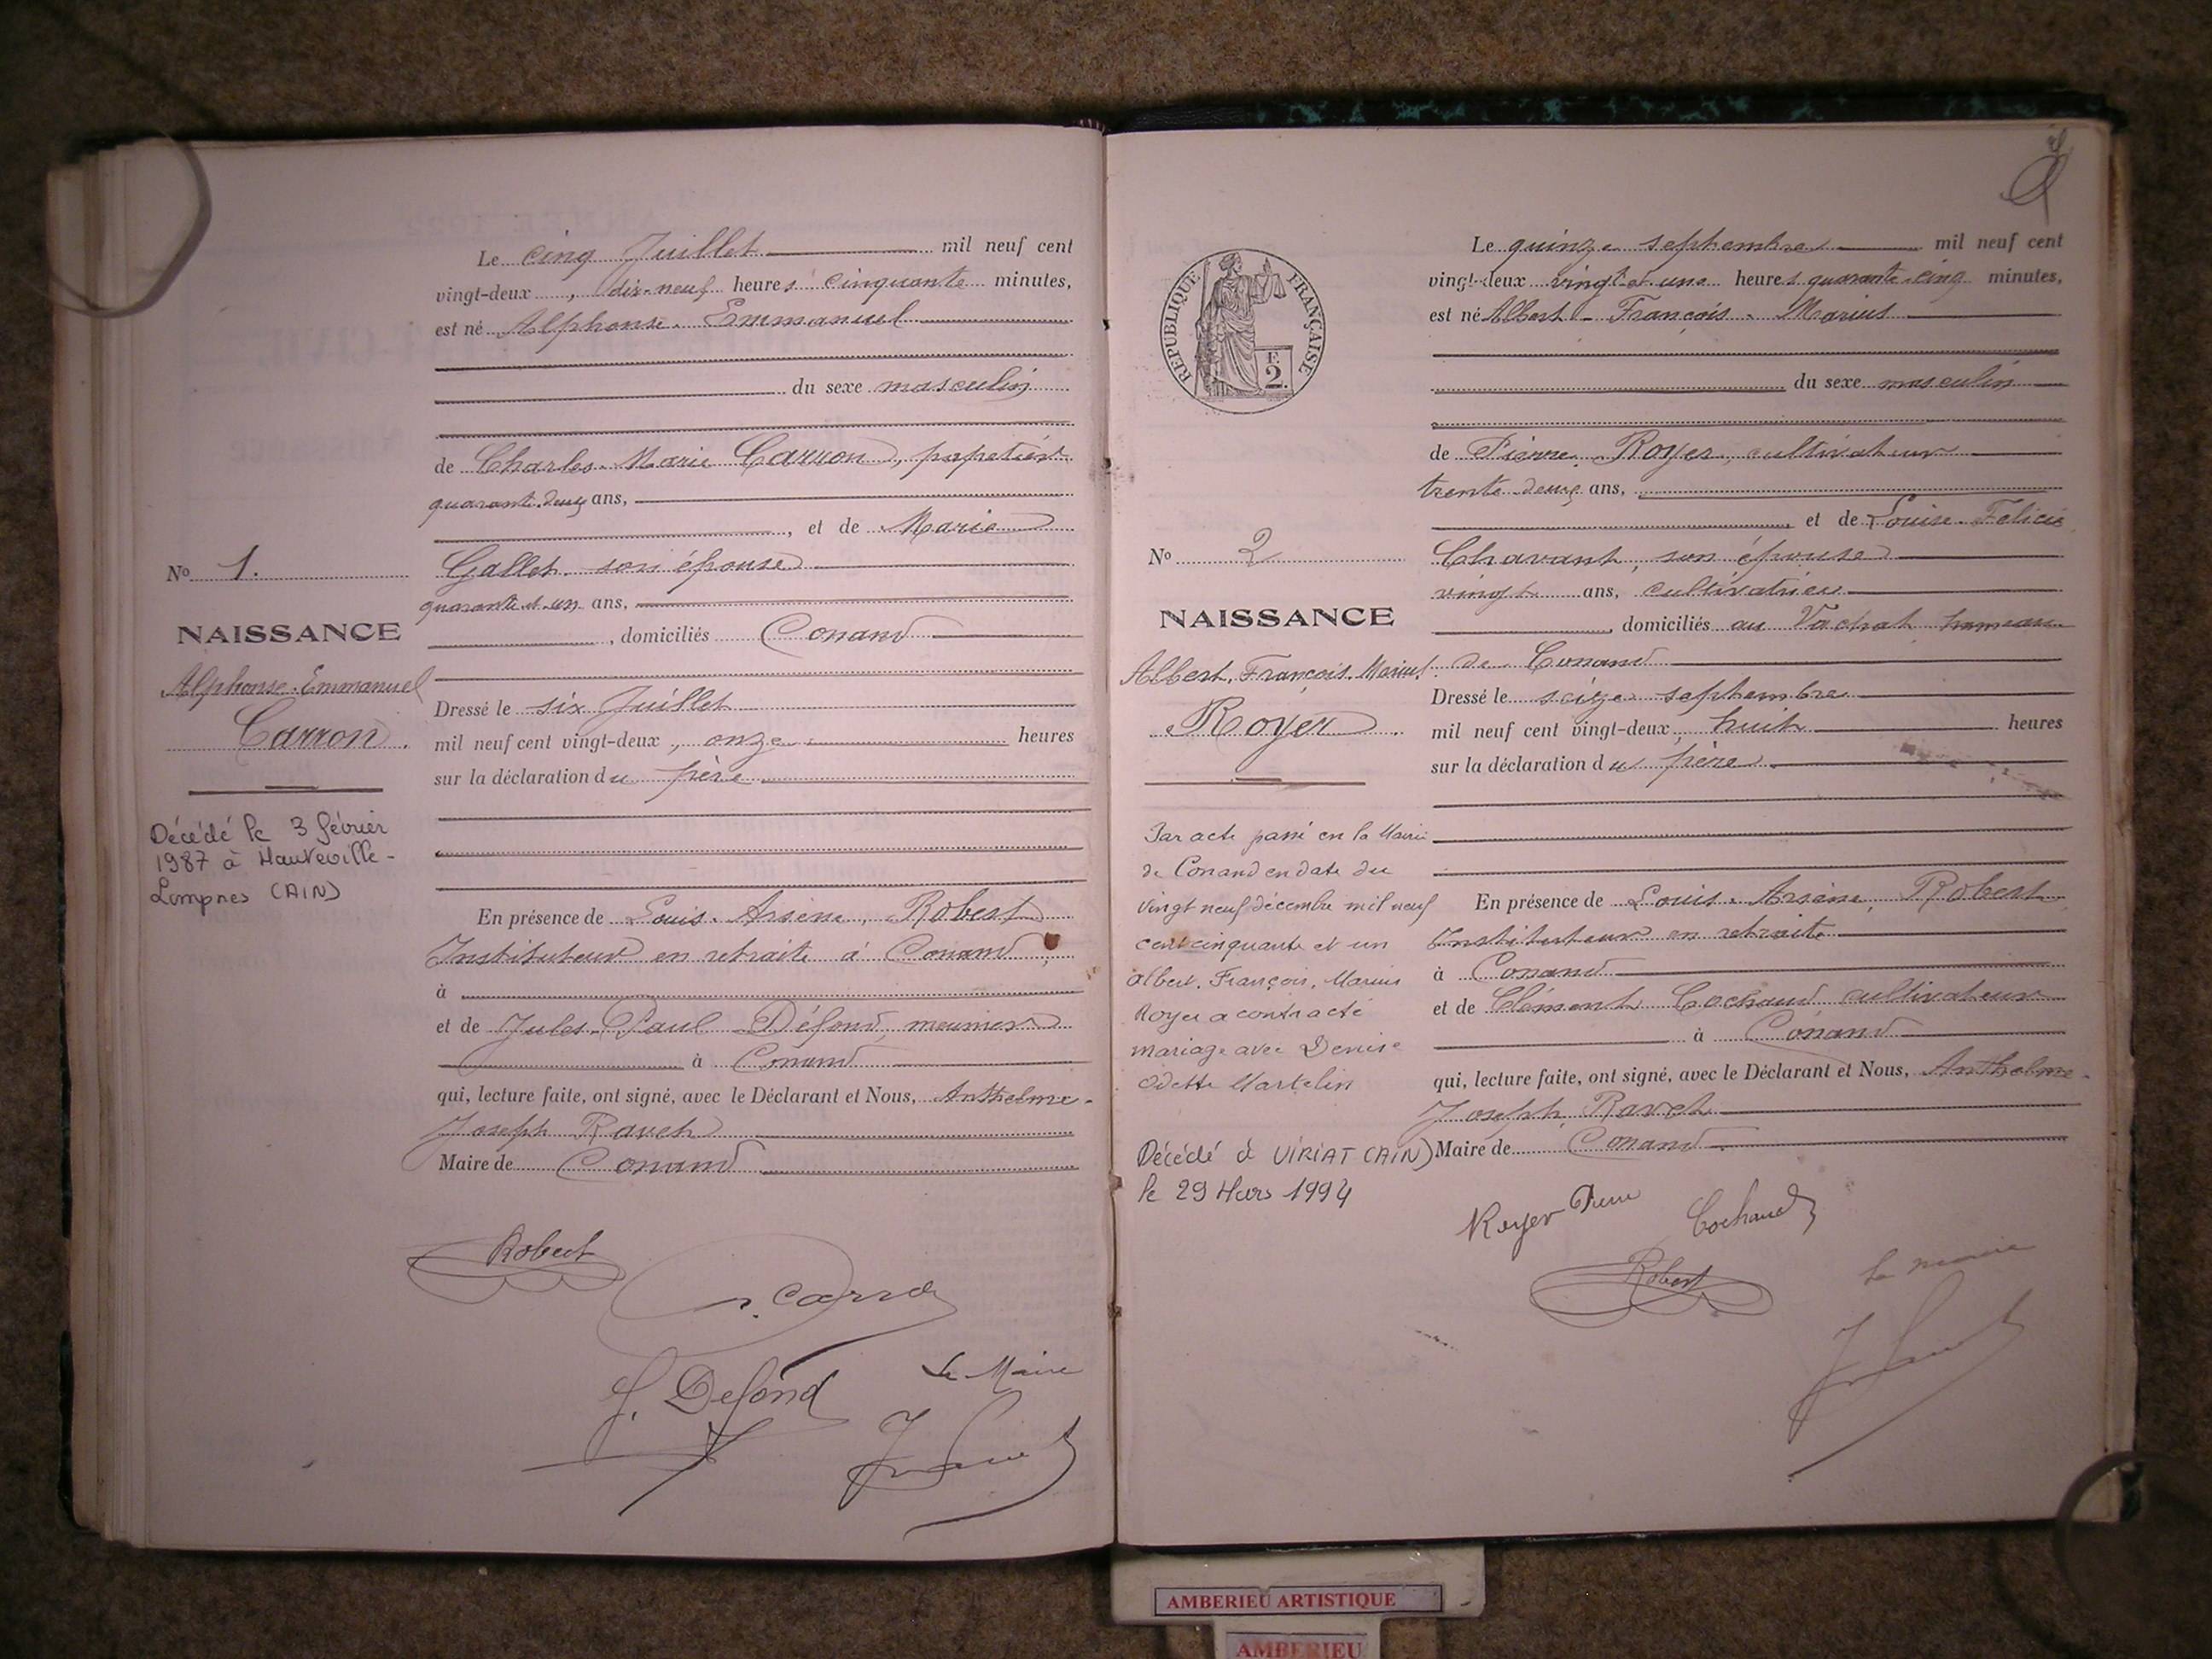 Le cinq Juillet mil neuf cent
vingt-deux, dix-neuf heures cinquante minutes,
est né Alphonse. Emmanuel
du sexe masculin
de Charles. Marie Carron, papetier
quarante-deux ans,
, et de Marie
Gallet. son épouse
quarante et un ans,
, domiciliés Conand
Dressé le six Juillet
mil neuf cent vingt-deux, onze heures
sur la déclaration du père
En présence de Louis. Arsène, Robert
Instituteur en retraite à Conand,
à
et de Jules. Paul Défond, meunier
à Conand
qui, lecture faite, ont signé, avec le Déclarant et Nous, Anthelme-
Joseph Ravet
Maire de Conand
No 1.
NAISSANCE
Alphonse. Emmanuel
Carron.
Décédé le 3 février
1987 à Hauteville-
Lompnes (AIN)
Robert
Carron
J. Defond
Le Maire
RÉPUBLIQUE FRANÇAISE
F.
2.
Le quinze septembre mil neuf cent
vingt-deux vingt et une heures quarante-cinq minutes,
est né Albert - François. Marius
du sexe masculin
de Pierre. Royer, cultivateur
trente-deux ans,
et de Louise. Félicie
Chavant, son épouse
vingt ans, cultivatrice
, domiciliés au Vachat hameau
de Conand
Dressé le seize septembre
mil neuf cent vingt-deux, huit heures
sur la déclaration du père.
En présence de Louis. Arsène, Robert
Instituteur en retraite
à Conand
et de Clément Cochaud, cultivateur
à Conand
qui, lecture faite, ont signé, avec le Déclarant et Nous, Anthelme-
Joseph, Ravet
Maire de Conand
No 2
NAISSANCE
Albert. François. Marius.
Royer.
Par acte passé en la Mairie
de Conand en date du
vingt neuf décembre mil neuf
cent cinquante et un
Albert. François, Marius
Royer a contracté
mariage avec Denise
Odette Martelin
Décédé à VIRIAT (AIN)
le 29 Mars 1994
Royer Pierre
Cochaud
Robert
Le maire
AMBERIEU ARTISTIQUE
AMBERIEU